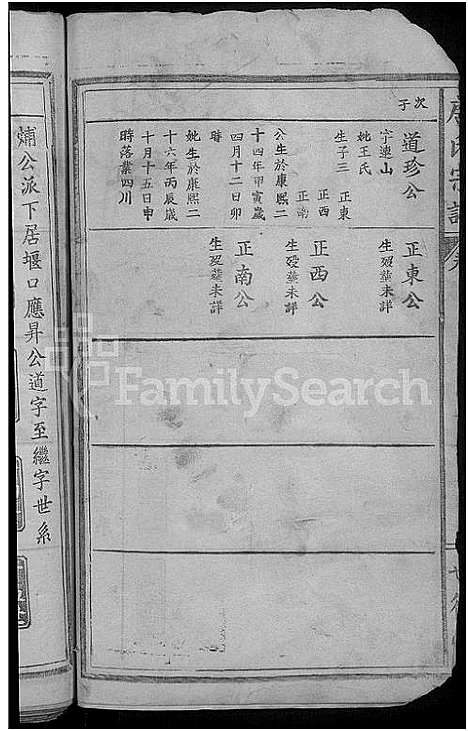 次子
道珍公
字連山
妣王氏
生子三 正東
正西
正南
公生於康熙二
十四年甲寅歲
四月十二日卯
時
妣生於康熙二
十六年丙辰歲
十月十五日申
時落業四川
正東公
生歿葬未詳
正西公
生歿葬未詳
正南公
生歿葬未詳
公派下居堰口應昇公道字至繼字世系
FamilySearch